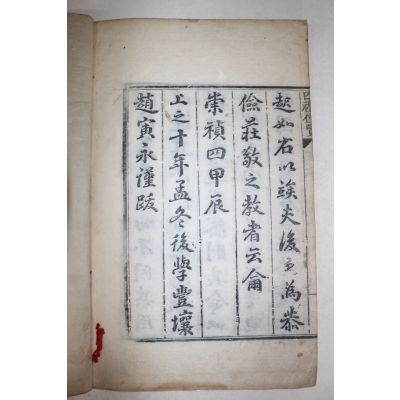 起如右以竢炎後之為恭
儉莊敬之教者云爾
崇禎四甲辰
上之十年孟冬後學豐壤
趙寅永謹跋